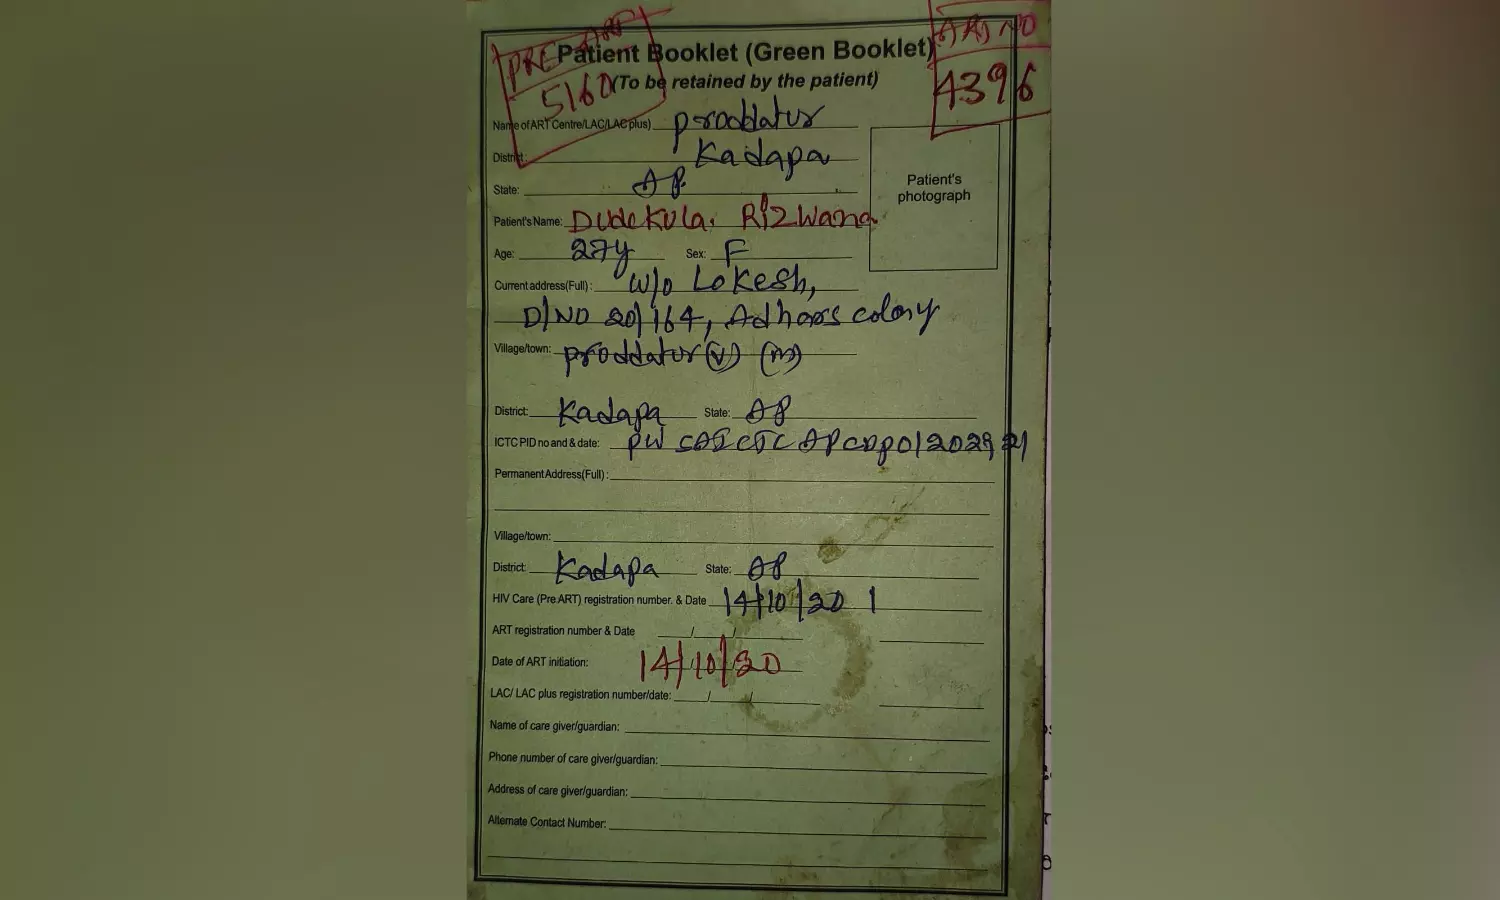 PRE ART
5160
ART NO
4396
Patient Booklet (Green Booklet)
(To be retained by the patient)
Name of ART Centre/LAC/LAC plus) Proddatur
District: Kadapa
State: AP
Patient's
photograph
Patient's Name: Dudekula. Rizwana
Age: 27y Sex: F
Current address(Full) : W/o Lokesh,
D/NO 20/164, colony
Village/town: Proddatur (V) (M)
District: Kadapa State: AP
ICTC PID no and & date: PW
Permanent Address(Full) :
Village/town:
District: Kadapa State: AP
HIV Care (Pre ART) registration number. & Date 14/10/20
ART registration number & Date / /
Date of ART initiation: 14/10/20
LAC/ LAC plus registration number/date: / /
Name of care giver/guardian:
Phone number of care giver/guardian:
Address of care giver/guardian:
Alternate Contact Number: